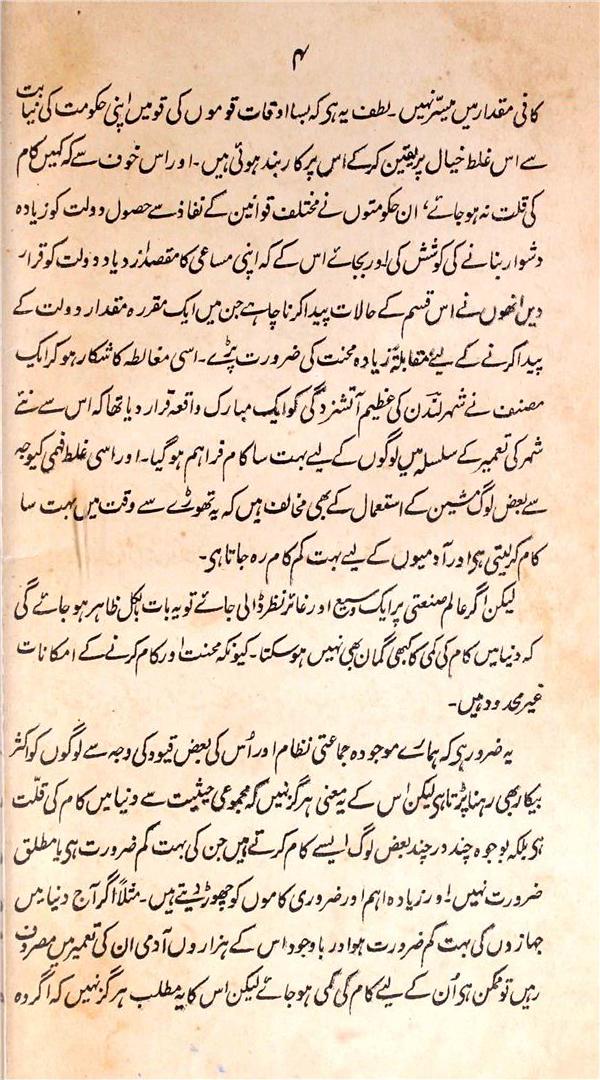 ۴
کافی مقدار میں میسّر نہیں۔ لطف یہ ہی کہ بسا اوقات قوموں کی قومیں اپنی حکومت کی نیابت
سے اس غلط خیال پر یقین کر کے اس پر کاربند ہوئی ہیں۔ اور اس خوف سے کہ کہیں کام
کی قلت نہ ہو جائے، ان حکومتوں نے مختلف قوانین کے نفاذ سے حصول دولت کو زیادہ
دشوار بنانے کی کوشش کی اور بجائے اس کے کہ اپنی مساعی کا مقصد ازدیاد دولت کو قرار
دیں انھوں نے اس قسم کے حالات پیدا کرنا چاہے جن میں ایک مقررہ مقدار دولت کے
پیدا کرنے کے لیئے مقابلۃً زیادہ محنت کی ضرورت پڑے۔ اسی مغالطہ کا شکار ہو کر ایک
مصنف نے شہر لندن کی عظیم آتشزدگی کو ایک مبارک واقعہ قرار دیا تھا کہ اس سے نئے
شہر کی تعمیر کے سلسلہ میں لوگوں کے لیے بہت سا کام فراہم ہو گیا۔ اور اسی غلط فہمی کیوجہ
سے بعض لوگ مشین کے استعمال کے بھی مخالف ہیں کہ یہ تھوڑے سے وقت میں بہت سا
کام کر لیتی ہی اور آدمیوں کے لیے بہت کم کام رہ جاتا ہی۔
لیکن اگر عالم صنعتی پر ایک وسیع اور غائر نظر ڈالی جائے تو یہ بات بالکل ظاہر ہو جائے گی
کہ دنیا میں کام کی کمی کا کبھی گمان بھی نہیں ہو سکتا۔ کیونکہ محنت اور کام کرنے کے امکانات
غیر محدود ہیں۔
یہ ضرور ہی کہ ہمارے موجودہ جماعتی نظام اور اُس کی بعض قیود کی وجہ سے لوگوں کو اکثر
بیکار بھی رہنا پڑتا ہی لیکن اس کے یہ معنی ہرگز نہیں کہ مجموعی حیثیت سے دنیا میں کام کی قلّت
ہی بلکہ بوجوہ چند در چند بعض لوگ ایسے کام کرتے ہیں جن کی بہت کم ضرورت ہی یا مطلق
ضرورت نہیں۔ اور زیادہ اہم اور ضروری کاموں کو چھوڑ دیتے ہیں۔ مثلاً اگر آج دنیا میں
جہازوں کی بہت کم ضرورت ہو اور باوجود اس کے ہزاروں آدمی ان کی تعمیر میں مصروف
رہیں تو ممکن ہی اُن کے لیے کام کی کمی ہو جائے لیکن اس کا یہ مطلب ہرگز نہیں کہ اگر وہ